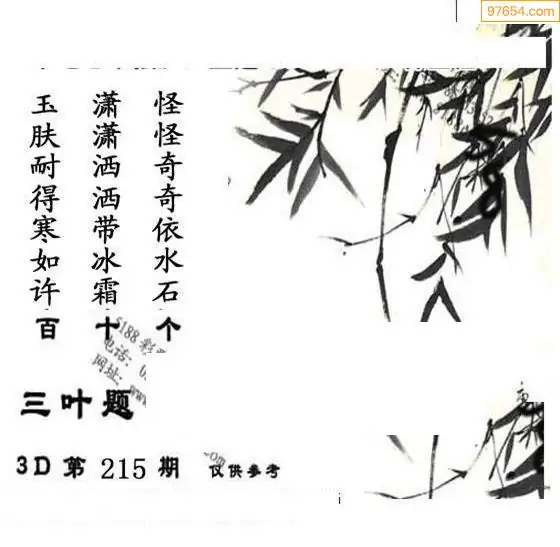 97654.com
怪怪奇奇依水石
潇潇洒洒带冰霜
玉肤耐得寒如许
百 十 个
5188 彩
电话: 0
网址: www
三叶题
.com
3D 第 215 期 仅供参考